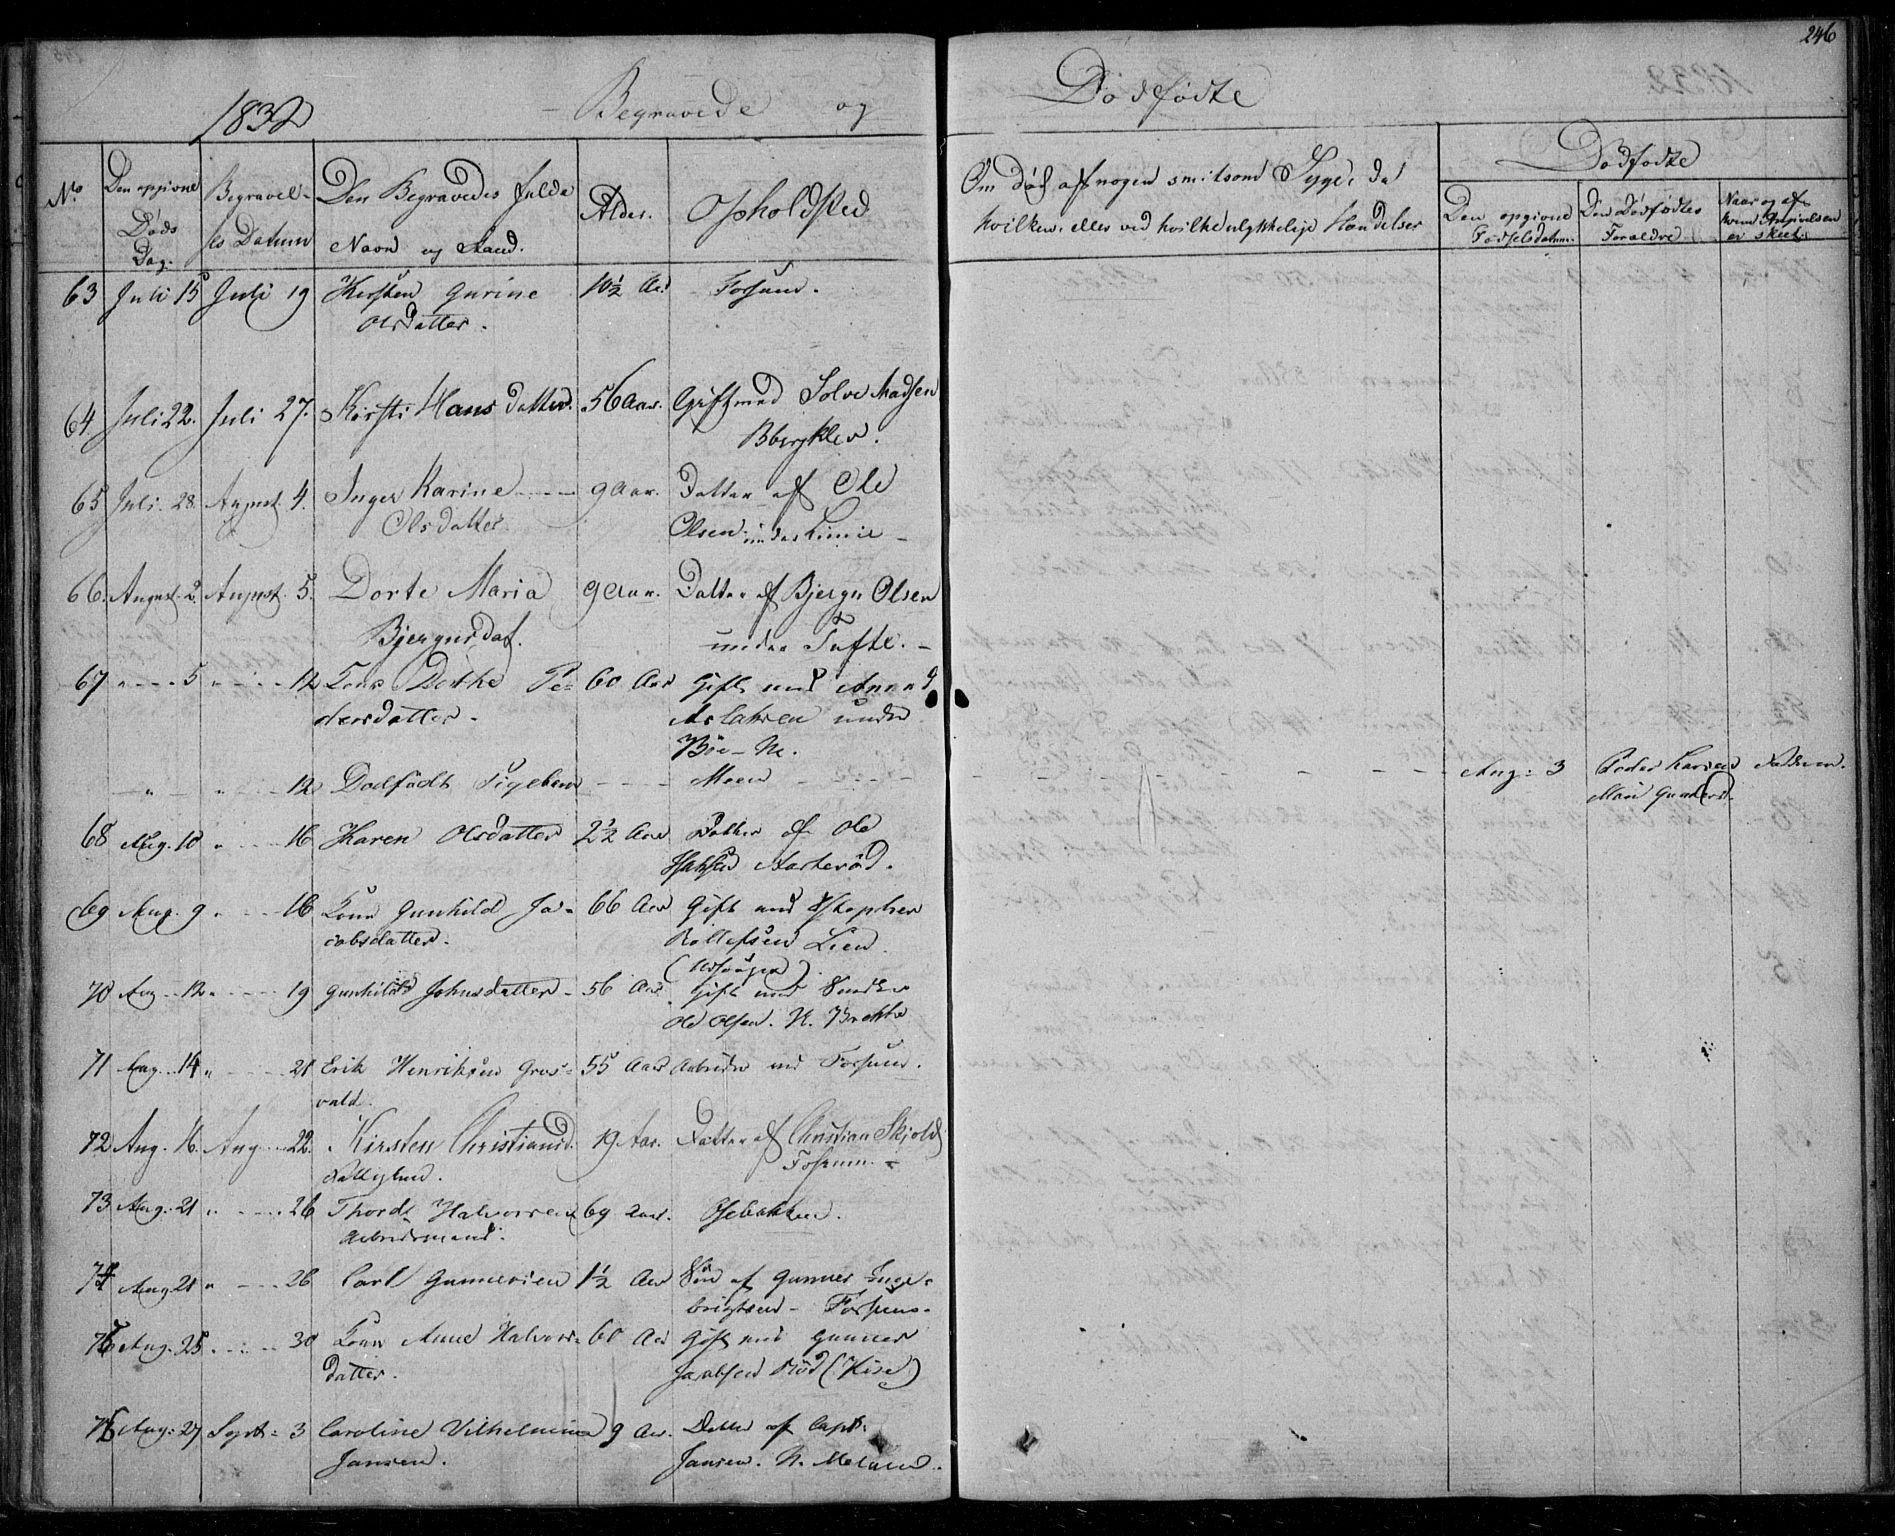 246
1832 Begravede og Dødfødte
No. Den opgivne Døds Dag. Begravelses Datum Den Begravedes fulde Navn og Stand. Alder. Opholdsted
Om død af nogen smitsom Syge, da
hvilken, eller ved hvilke ulykkelige Hændelser
Dødfødte
Den opgivne Fødselsdatum. Den Dødfødtes Forældre Naar og af hvem Angivelsen er skeet.
63 Juli 15 Juli 19 Kirsten Gurine 10½ Aar Forsum.
Olsdatter.
64. Juli 22. Juli 27. Kirsti Hans datter. 56 Aar. Gift med Solve Madsen
65 Juli. 28. August. 4. Inger Karine 9 Aar. Datter af Ole
Olsdatter Olsen under Linie
66. August. 2. August. 5. Dorte Maria 9 Aar. Datter af Bjørgu Olsen
Bjergursdat. under Tufte.
67 " 5 " 12 Kone Dorthe Pe= 60 Aar Gift med
dersdatter. Aslaksen under
Böe - N.
" " 12 Dødfødt Pigebarn Moen Aug: 3 Peder Larsen Faderen.
Mari Gundersd.
68 Aug. 10 " 16 Karen Olsdatter 2½ Aar Datter af Ole
69 Aug. 9 " 16 Kone Gunhild Ja= 66 Aar Gift med Stephen
cobsdatter. Rollefsen Lien
70 Aug 12 " 19 Gunhild Johnsdatter 56 Aar Gift med Smeden
Ole Olsen. N. Brekke
71 Aug. 14 " 21 Erik Henriksen Gros= 55 Aar Arbeider ved Forsum.
vald.
72 Aug. 16. Aug 22. Kirsten Christiansd. 19 Aar. Datter af Christian Skjold
Fattiglem. Fossum.
73 Aug. 21 " 26 Thord Halvorsen 69 Aar. Osebakken.
Arbeidsmand.
74 Aug 21 " 26 Carl Gunnersen 1½ Aar Søn af Gunner Inge=
brigtsen - Forsum.
75 Aug. 25 " 30 Kone Anne Halvors= 60 Aar Gift med Gunner
datter. Jacobsen Röd (Kise)
76 Aug. 27 Sept. 3 Caroline Vilhelmine 9 Aar. Datter af Capt.
Jansen. Jansen. N. Melum.